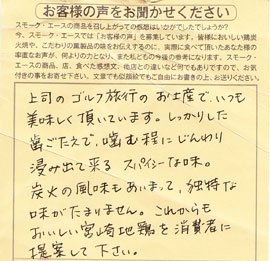 お客様の声をお聞かせください
スモーク・エースの商品を召し上がっての感想はいかがでしたでしょうか?
今、スモーク・エースでは「お客様の声」を募集しています。皆様においしい鶏炭
火焼や、こだわりの薫製品の味をお伝えするのに、実際に食べて頂いたあなた様の
率直なお声が、何よりの力となり、また私どもの今後の参考になります。スモーク・
エースの商品、店、食べた感想文、他店との違いなど何でもありですので、お気
付きの事をお寄せ下さい。文章でも似顔絵でもご自由にお書きの上、お送りください。
上司のゴルフ旅行のお土産で、いつも
美味しく頂いています。しっかりした
歯ごたえで、噛む程にじんわり
浸み出て来る スパイシーな味。
炭火の風味もあいまって、独特な
味がたまりません。これからも
おいしい宮崎地鶏を消費者に
提案して下さい。